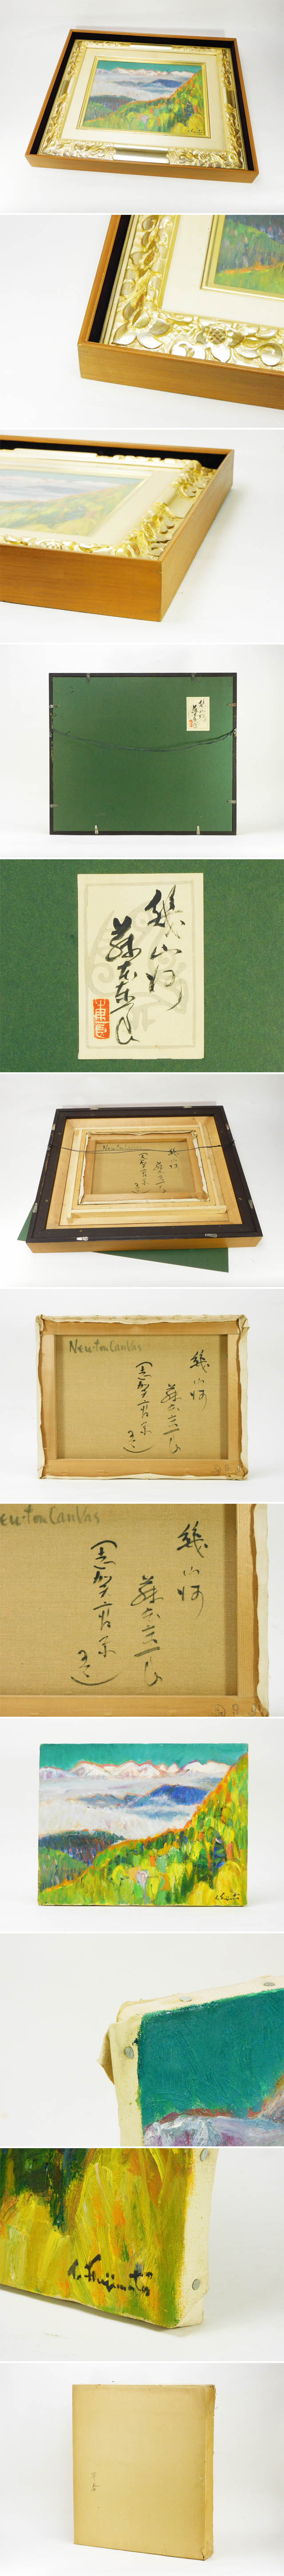 幾山河
藤本東一良
Newton Canvas
幾山河
藤本東一良
(志賀高原
幾山河
藤本東一良
(志賀高原
t. Fujimoto